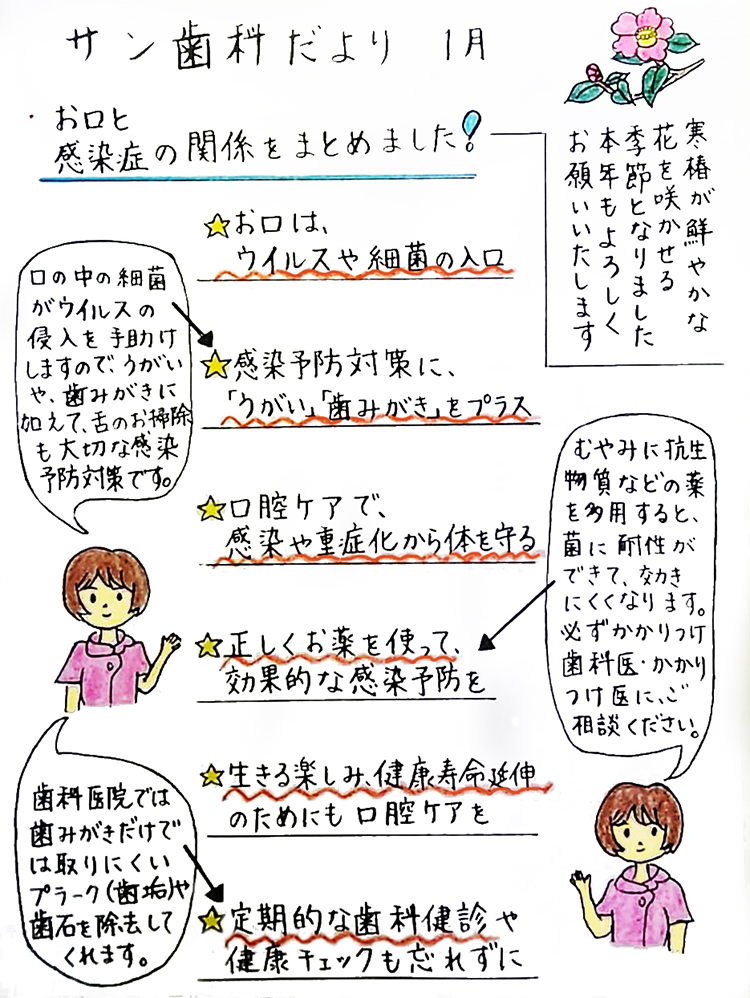 サン歯科だより 1月
寒椿が鮮やかな
花を咲かせる
季節となりました
本年もよろしく
お願いいたします
お口と
感染症の関係をまとめました!
☆お口は、
ウイルスや細菌の入口
口の中の細菌
がウイルスの
侵入を手助け
しますので、うがい
や、歯みがきに
加えて、舌のお掃除
も大切な感染
予防対策です。
☆感染予防対策に、
「うがい」「歯みがき」をプラス
☆口腔ケアで、
感染や重症化から体を守る
むやみに抗生
物質などの薬
を多用すると、
菌に耐性が
できて、効き
にくくなります。
必ずかかりつけ
歯科医・かかり
つけ医に、ご
相談ください。
☆正しくお薬を使って、
効果的な感染予防を
☆生きる楽しみ、健康寿命延伸
のためにも口腔ケアを
歯科医院では
歯みがきだけで
は取りにくい
プラーク(歯垢)や
歯石を除去して
くれます。
☆定期的な歯科健診や
健康チェックも忘れずに